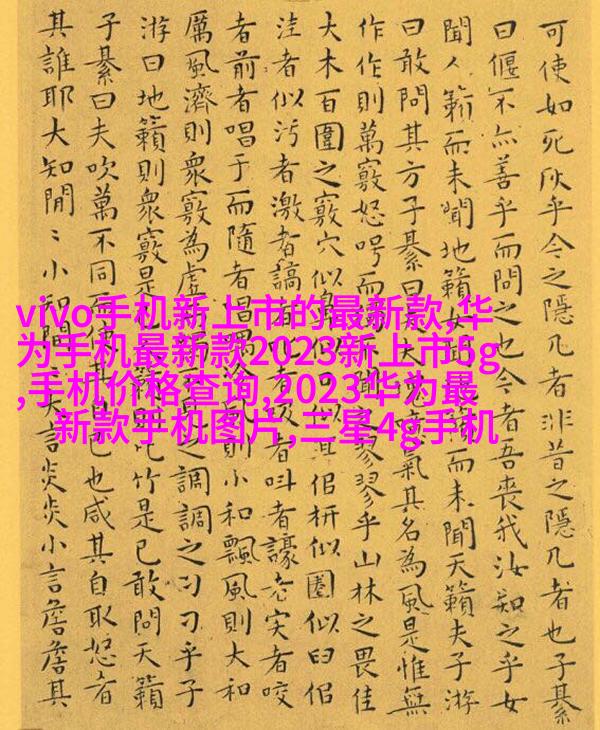 可使如死灰乎今之隱几者非昔之隱几者也子綦
曰偃不亦善乎而問之也今者吾喪我汝知之乎女
聞人籟而未聞地籟女聞地籟而未聞天籟夫子游
曰敢問其方子綦曰夫大塊噫氣其名為風是惟無
作作則萬竅怒呺而翏翏乎山林之畏佳
大木百圍之竅穴似佀枅似圈似臼佀
洼者似污者激者謞者者叫者譹者宎者咬
者前者唱于而隨者唱則小和飄風則大和
厲風濟則衆竅為虛而之調調之刁刁乎子
游曰地籟則衆竅是籟則比竹是已敢問天籟
子綦曰夫吹萬不同而使其自已也咸其自取怒者
其誰耶大知閒〻小知閒〻大言炎炎小言詹詹其
vivo手机新上市的最新款,华
为手机最新款2023新上市5g
,手机价格查询,2023华为最
新款手机图片,三星4g手机